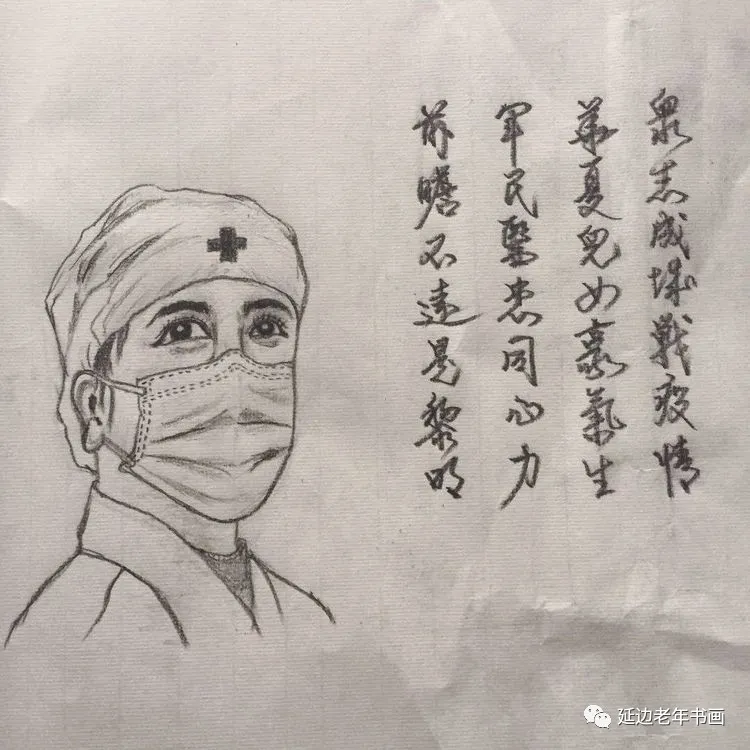 衆志成城戰疫情
華夏兒女豪氣生
軍民醫患同心力
前瞻不遠是黎明
延边老年书画